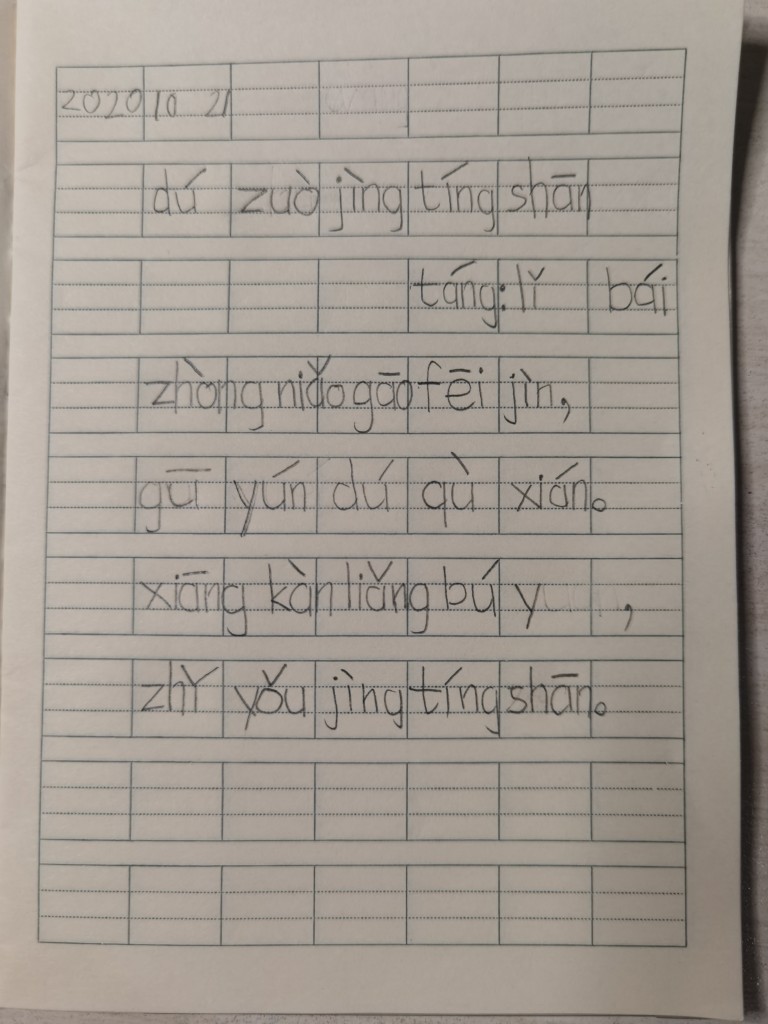 2020 10 21
dú zuò jìng tíng shān
táng: lǐ bái
zhòng niǎo gāo fēi jìn,
gū yún dú qù xián。
xiāng kàn liǎng bú y ,
zhǐ yǒu jìng tíng shān。